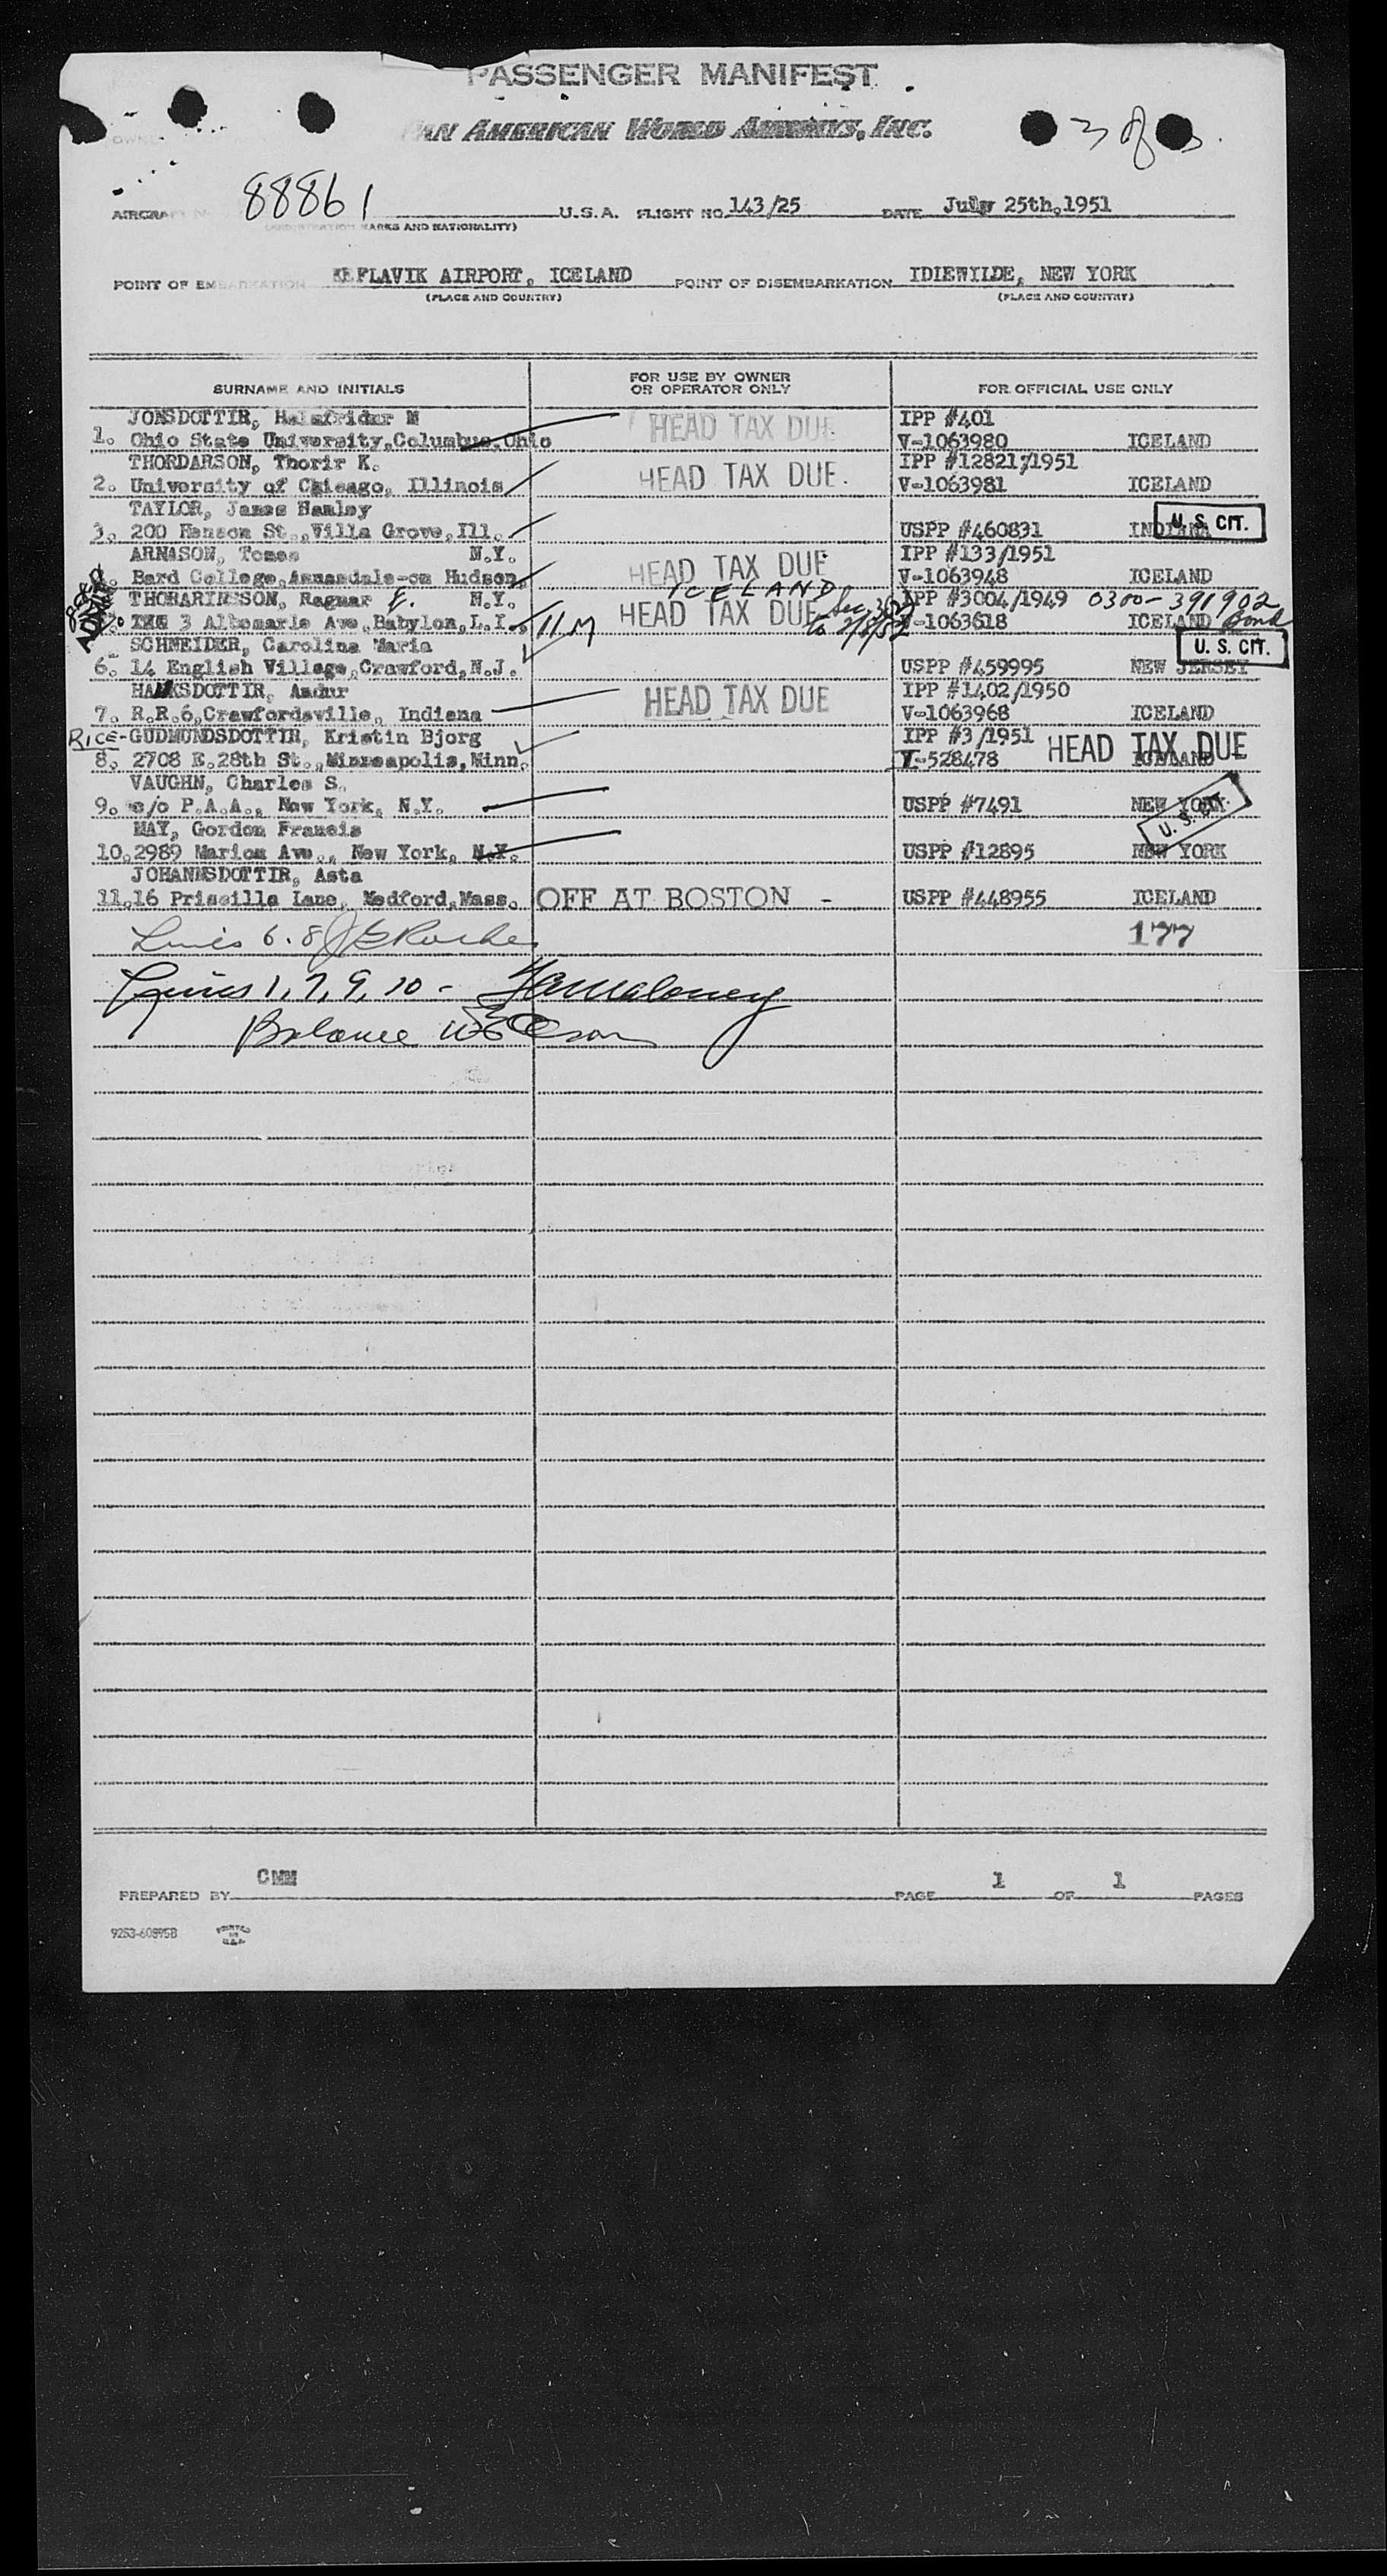 PASSENGER MANIFEST
PAN AMERICAN WORLD AIRWAYS, INC.
3 of
AIRCRAFT 88861 U.S.A. FLIGHT NO. 143/25 DATE July 25th,1951
MARKS AND NATIONALITY)
POINT OF EMBARKATION KEFLAVIK AIRPORT, ICELAND POINT OF DISEMBARKATION IDIEWILDE, NEW YORK
(PLACE AND COUNTRY) (PLACE AND COUNTRY)
SURNAME AND INITIALS FOR USE BY OWNER OR OPERATOR ONLY FOR OFFICIAL USE ONLY
JONSDOTTIR, M HEAD TAX DUE IPP #401
1. Ohio State University,Columbus,Ohio V-1063980 ICELAND
THORDARSON, Thorir K. HEAD TAX DUE. IPP #128217/1951
2. University of Chicago, Illinois V-1063981 ICELAND
TAYLOR, James Hanley
3. 200 Henson St.,Villa Grove,Ill. USPP #460831 INDIANA U. S. CIT.
ARNASON, Tomas N.Y. HEAD TAX DUE IPP #133/1951
Bard College,Annandale-on Hudson, V-1063948 ICELAND
THORARINSSON, Ragnar E. N.Y. ICELAND IPP #3004/1949 0300-391902
3 Albemarle Ave,Babylon,L.I., 11 M HEAD TAX DUE to 2/8/52 V-1063618 ICELAND Bond
SCHNEIDER, Carolina Maria U. S. CIT.
6. 14 English Village,Crawford,N.J. USPP #459995 NEW JERSEY
Audur HEAD TAX DUE IPP #1402/1950
7. R.R.6,Crawfordsville, Indiana V-1063968 ICELAND
RICE-GUDMUNDSDOTTIR, Kristin Bjorg IPP #3/1951 HEAD TAX DUE
8. 2708 E.28th St.,Minneapolis,Minn. V-528478 ICELAND
VAUGHN, Charles S.
9. c/o P.A.A., New York, N.Y. USPP #7491 NEW YORK U. S. CIT.
MAY, Gordon Francis
10.2989 Marion Ave., New York, N.Y. USPP #12895 NEW YORK
JOHANNSDOTTIR, Asta
11.16 Priscilla Lane, Medford,Mass. OFF AT BOSTON - USPP #448955 ICELAND
Lines 6.8 177
Lines 1, 7, 9, 10 -
Balance
PREPARED BY CMM PAGE 1 OF 1 PAGES
9253-60895B PRINTED IN U.S.A.